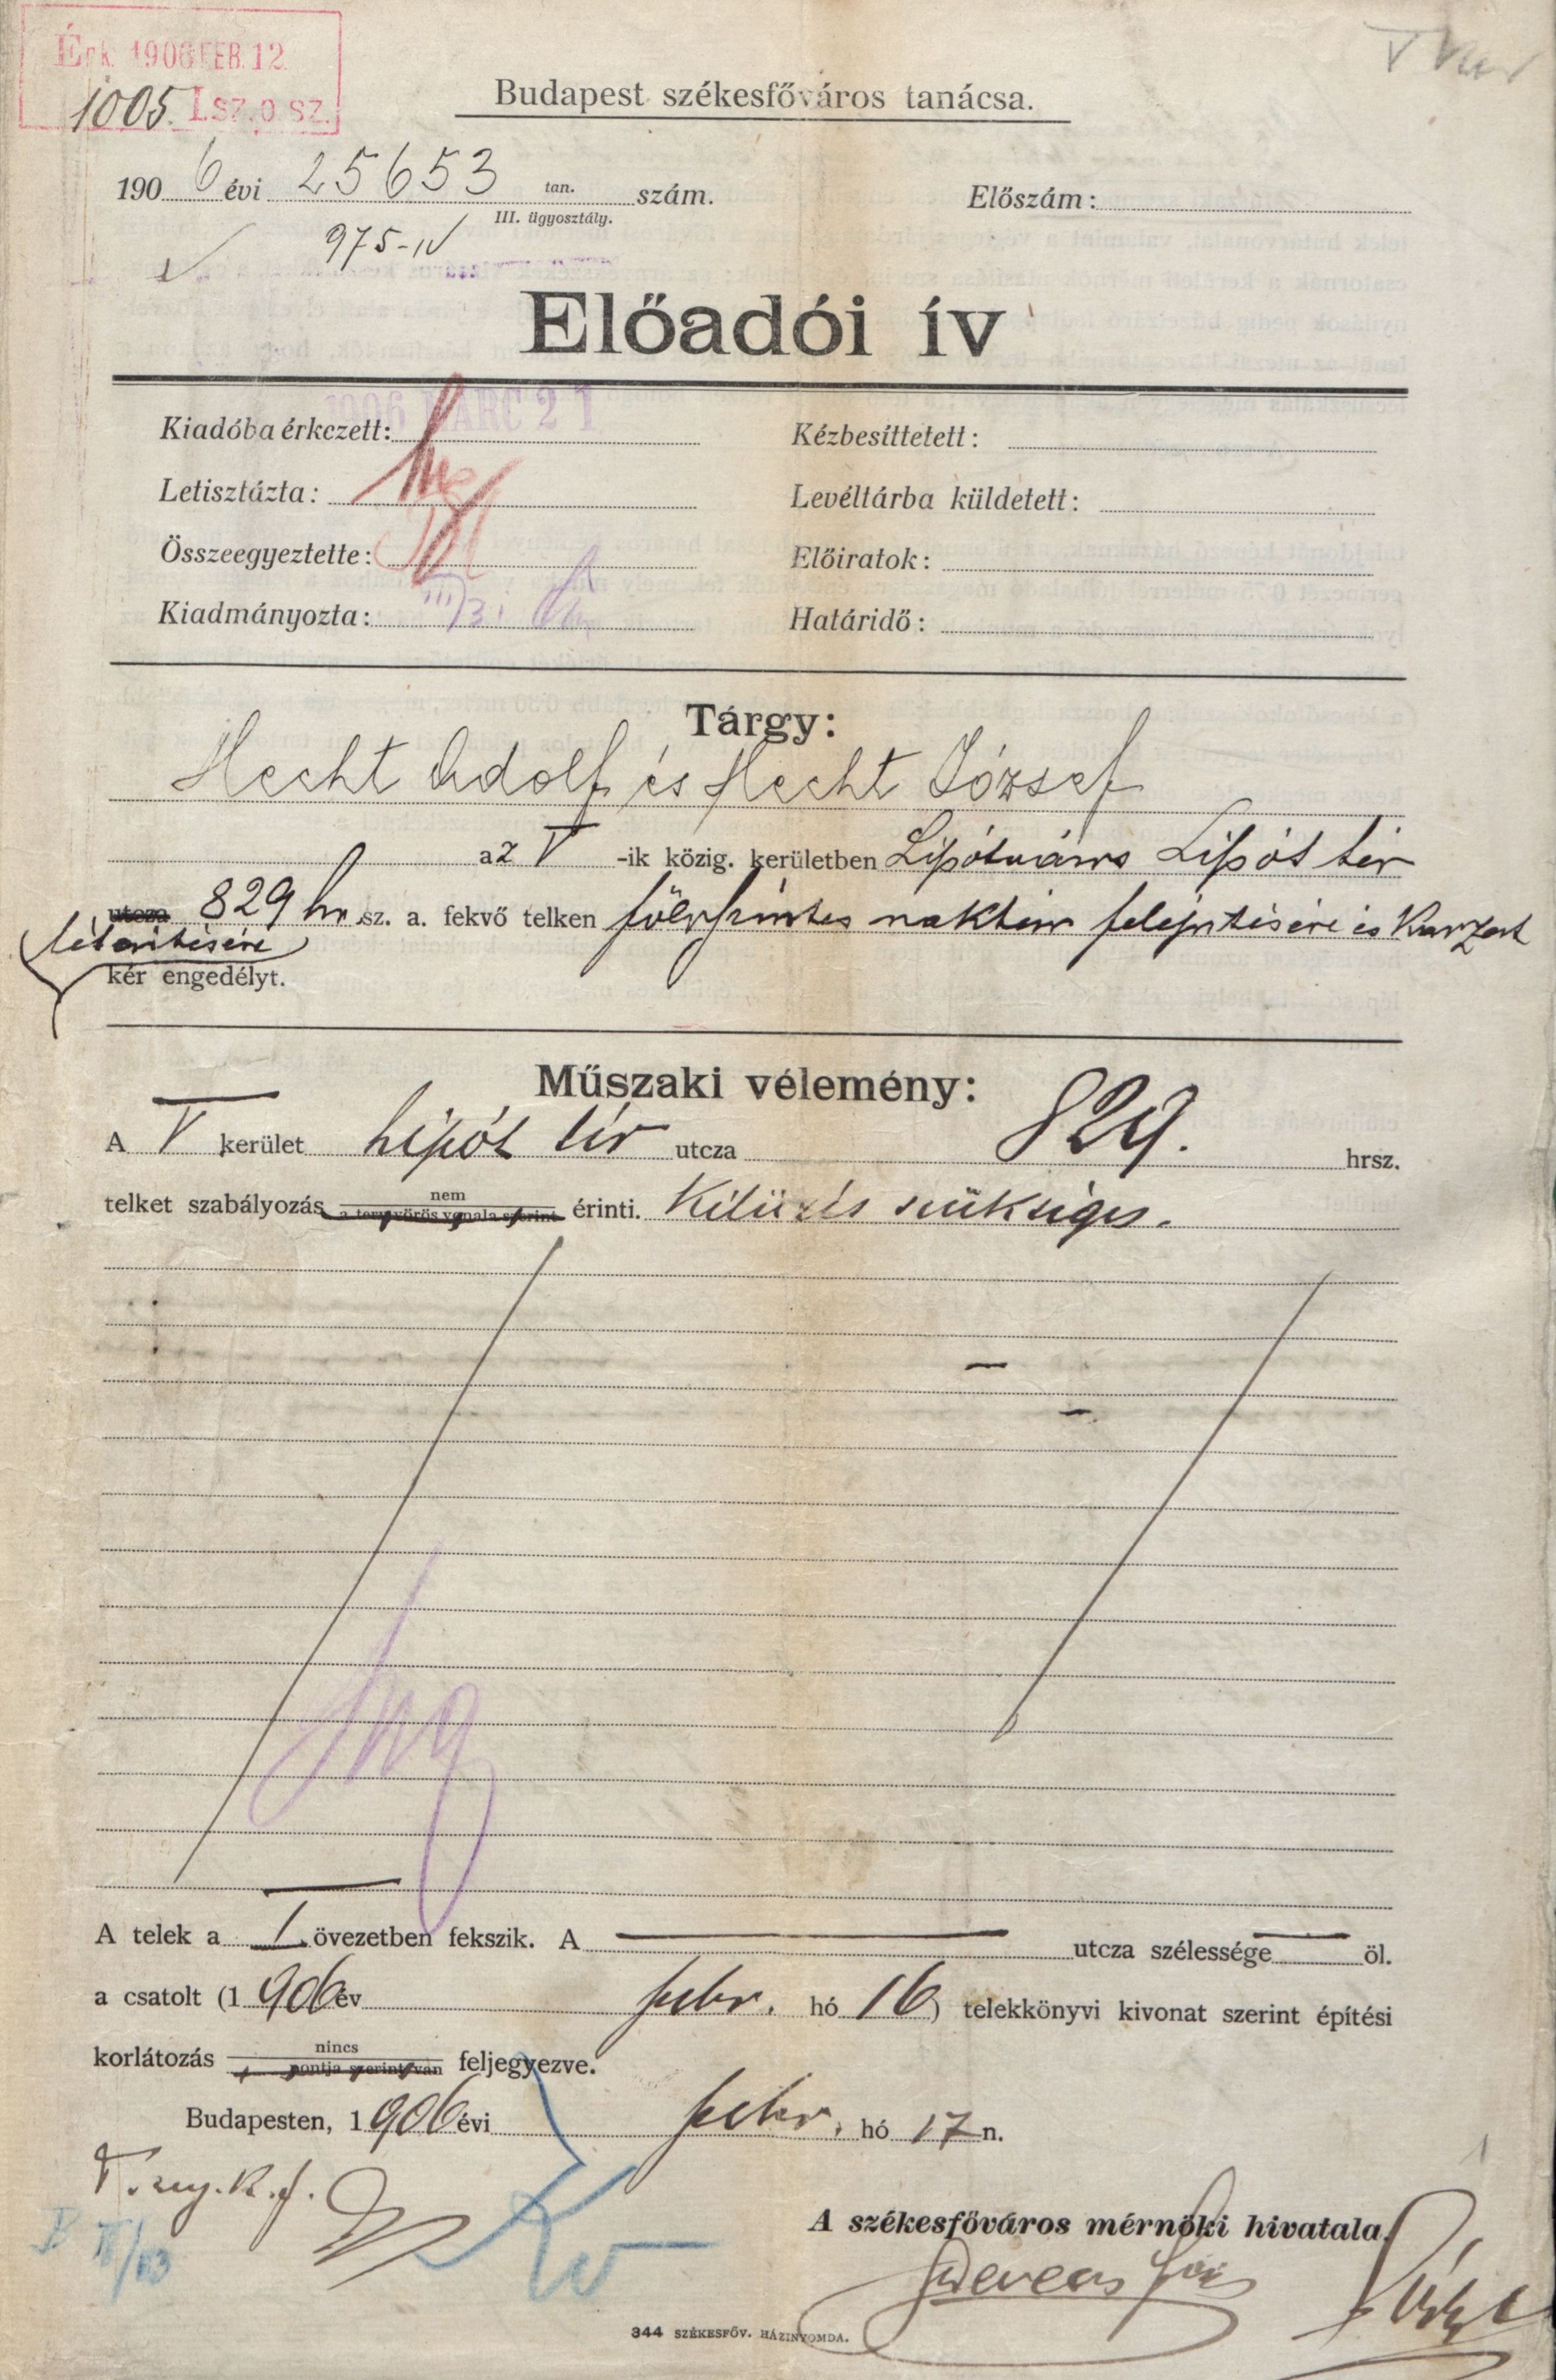 Érk. 1906 FEB. 12.
1005. I. sz. o. sz.
V ker
Budapest székesfőváros tanácsa.
1906 évi 25653 tan. szám.
III. ügyosztály.
Előszám:
975-IV
Előadói ív
1906 MÁRC 21
Kiadóba érkezett:
Kézbesíttetett:
Letisztázta:
Levéltárba küldetett:
Összeegyeztette:
Előiratok:
Kiadmányozta: III/31
Határidő:
Tárgy:
Hecht Adolf és Hecht József
az V -ik közig. kerületben Lipótváros Lipót tér
utcza 829 hr. sz. a. fekvő telken földszintes raktár felépítésére és Karzat
létesítésére
kér engedélyt.
Műszaki vélemény:
A V kerület Lipót tér utcza 829. hrsz.
telket szabályozás nem érinti. Kitűzés szükséges.
a terv vörös vonala szerint
A telek a I. övezetben fekszik. A utcza szélessége öl.
a csatolt (1906 év febr. hó 16) telekkönyvi kivonat szerint építési
korlátozás nincs feljegyezve.
pontja szerint van
Budapesten, 1906 évi febr. hó 17 n.
A székesfőváros mérnöki hivatala.
344 SZÉKESFŐV. HÁZINYOMDA.